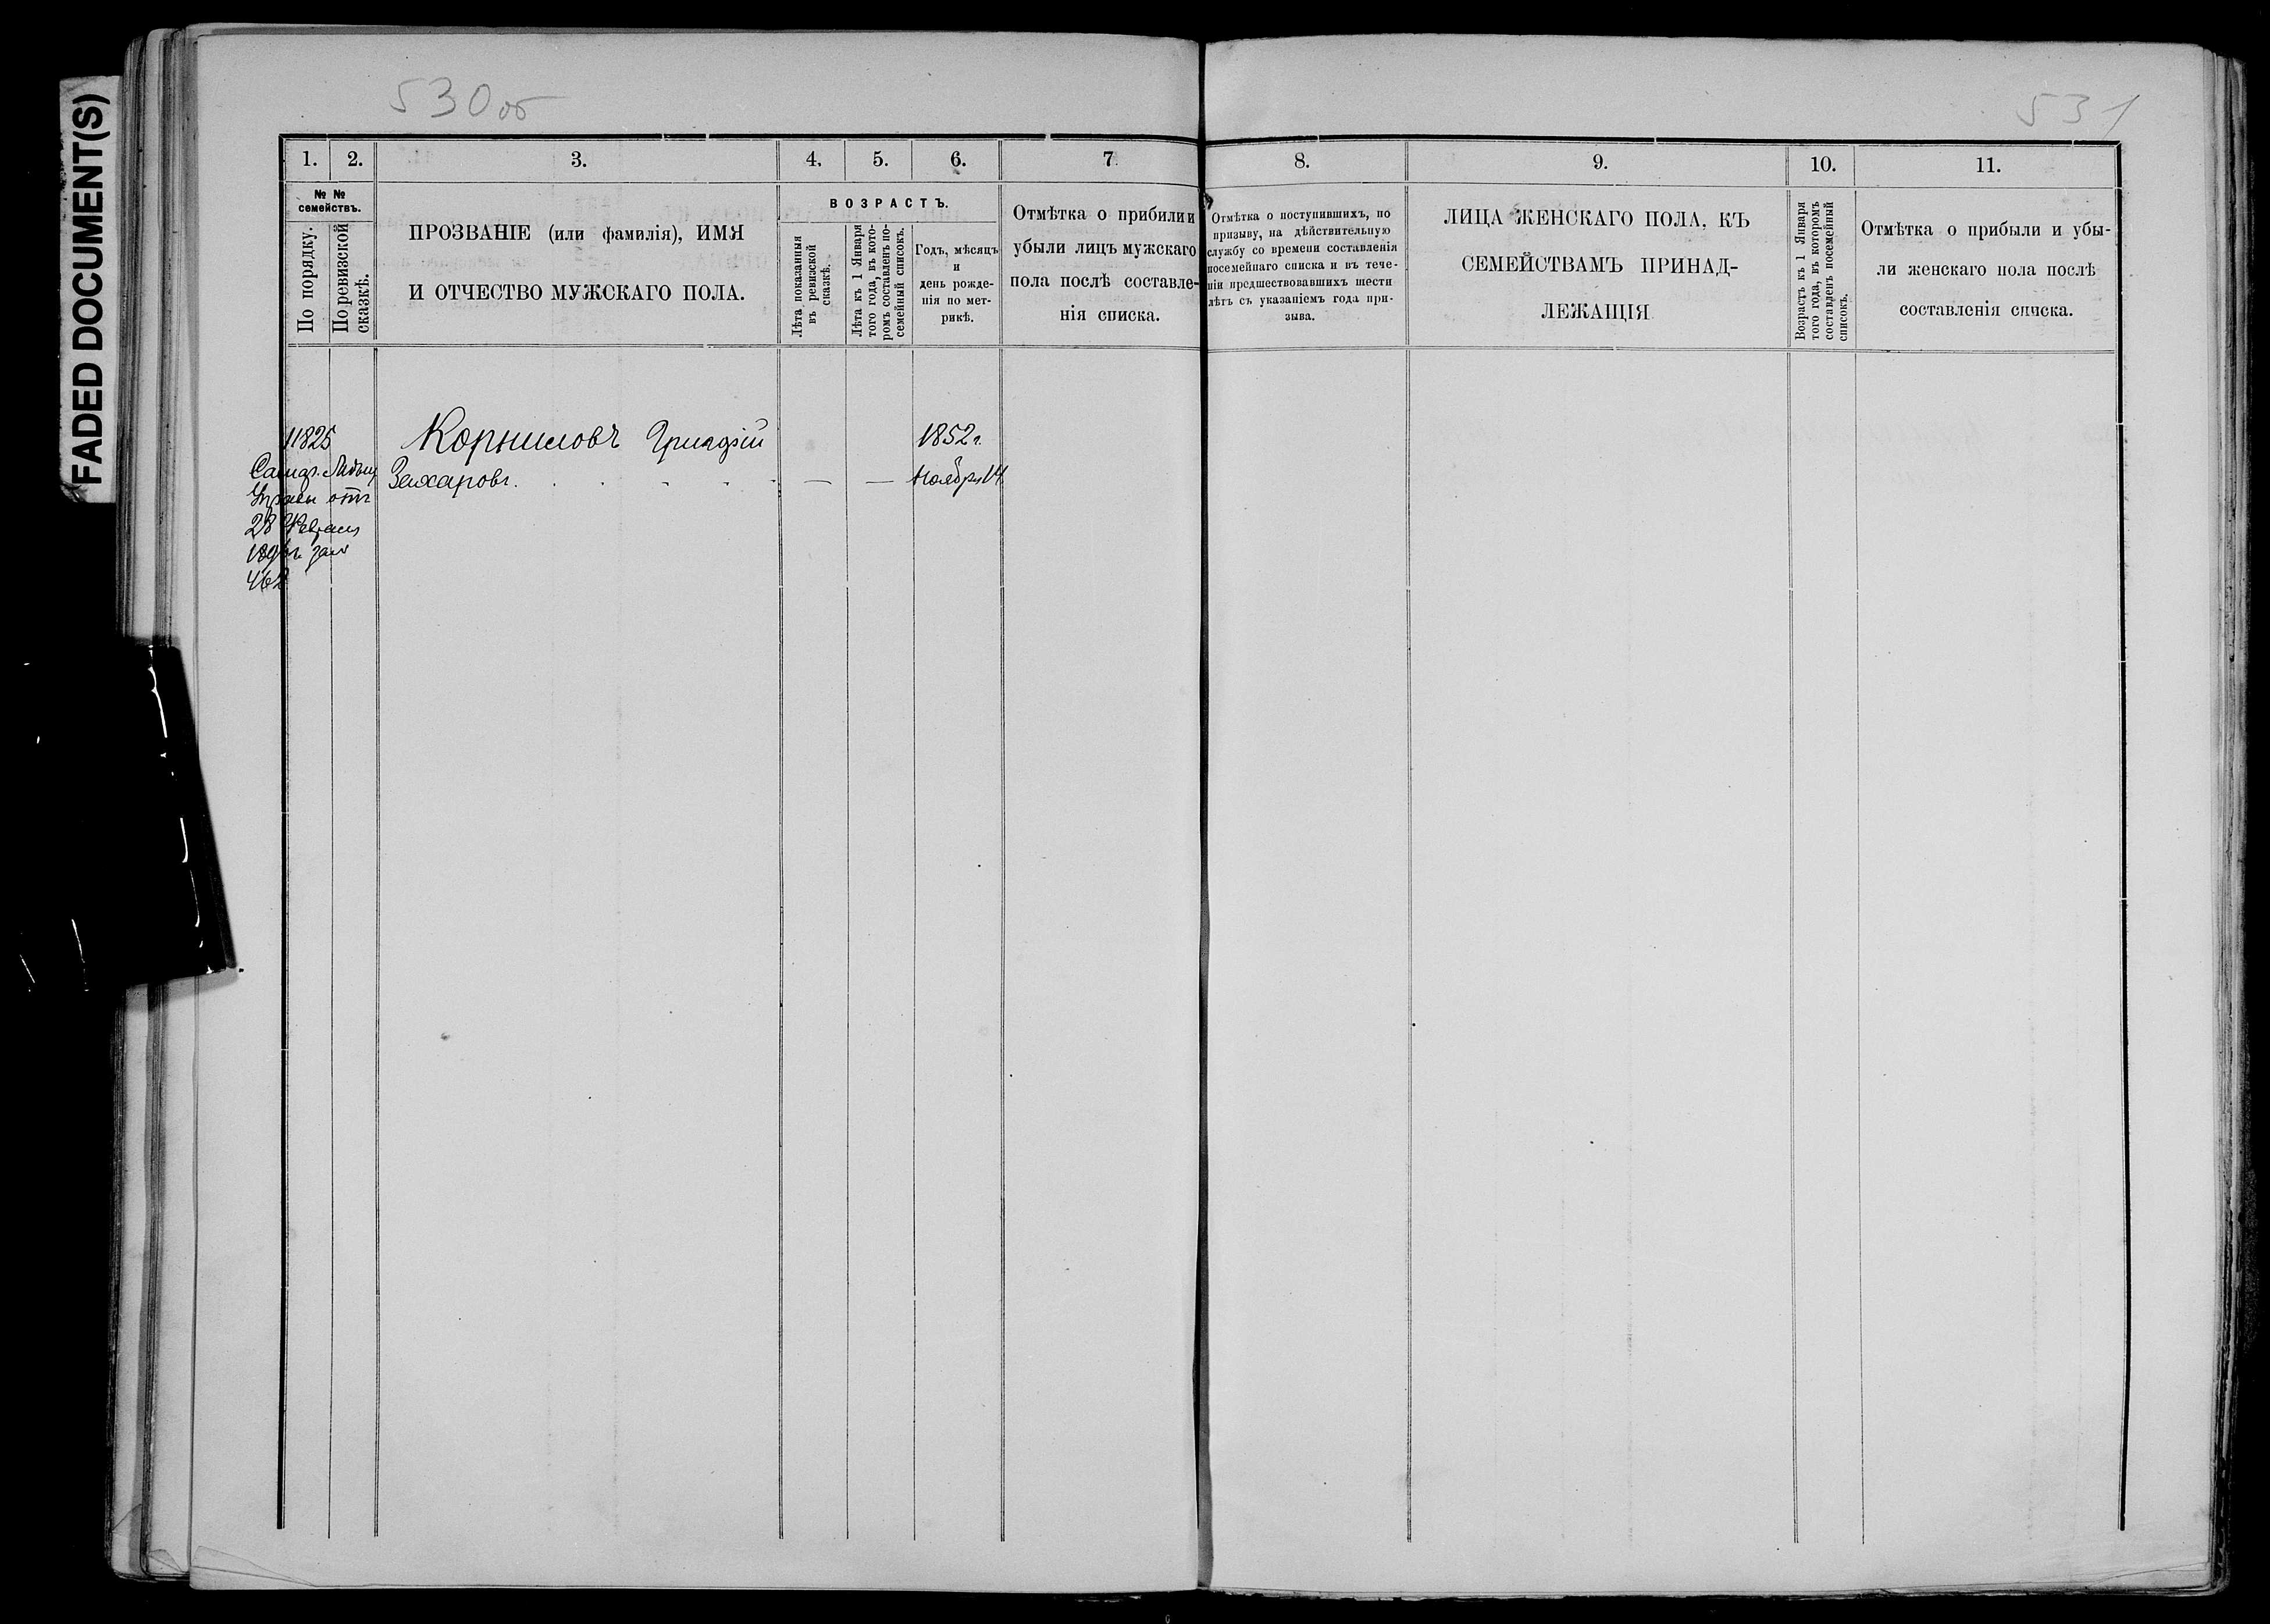 FADED DOCUMENT(S)
530 об
531
1. 2. 3. 4. 5. 6. 7. 8. 9. 10. 11.
№ №
семействъ.
По порядку.
По ревизской
сказкѣ.
ПРОЗВАНІЕ (или фамилія), ИМЯ
И ОТЧЕСТВО МУЖСКАГО ПОЛА.
ВОЗРАСТЪ.
Лѣта показанныя
въ ревизской
сказкѣ.
Лѣта къ 1 Января
того года, въ кото-
ромъ составленъ по-
семейный списокъ.
Годъ, мѣсяцъ
и
день рожде-
нія по мет-
рикѣ.
Отмѣтка о прибили и
убыли лицъ мужскаго
пола послѣ составле-
нія списка.
Отмѣтка о поступившихъ, по
призыву, на дѣйствительную
службу со времени составленія
посемейнаго списка и въ тече-
ніи предшествовавшихъ шести
лѣтъ съ указаніемъ года при-
зыва.
ЛИЦА ЖЕНСКАГО ПОЛА, КЪ
СЕМЕЙСТВАМЪ ПРИНАД-
ЛЕЖАЩІЯ
Возрастъ къ 1 Января
того года, въ которомъ
составленъ посемейный
списокъ.
Отмѣтка о прибыли и убы-
ли женскаго пола послѣ
составленія списка.
11825 Корниловъ 1852 г.
Захаровъ. — — Ноября 14
Управы отъ
28 Февраля
462